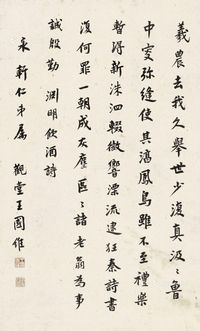 羲農去我久舉世少復真汲〻魯
中叟弥縫使其淳鳳鳥雖不至禮樂
暫得新洙泗輟微響漂流逮狂秦詩書
復何罪一朝成灰塵區〻諸老翁為事
誠殷勤 淵明飲酒詩
軒仁弟属 觀堂王國維